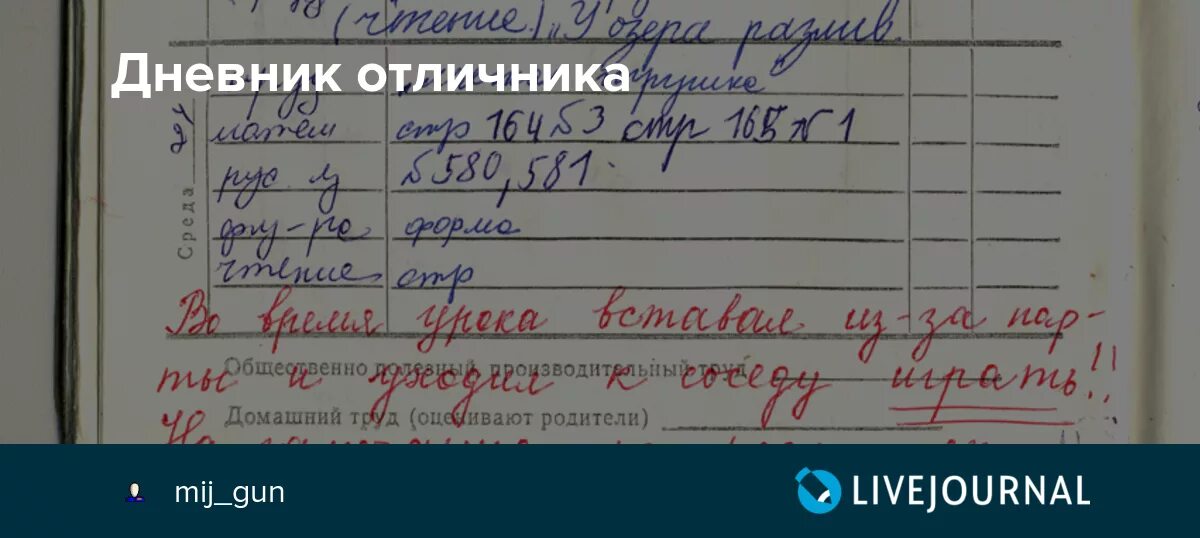 (чтение) „У озера разлив.
Дневник отличника
24
матем стр 164 №3 стр 165 №1
рус. яз №580, 581.
Среда
физ-ра форма
чтение стр
Во время урока вставал из-за пар-
Общественно полезный, производительный труд
ты и уходил к соседу играть!!
Домашний труд (оценивают родители)
На
mij_gun
LIVEJOURNAL